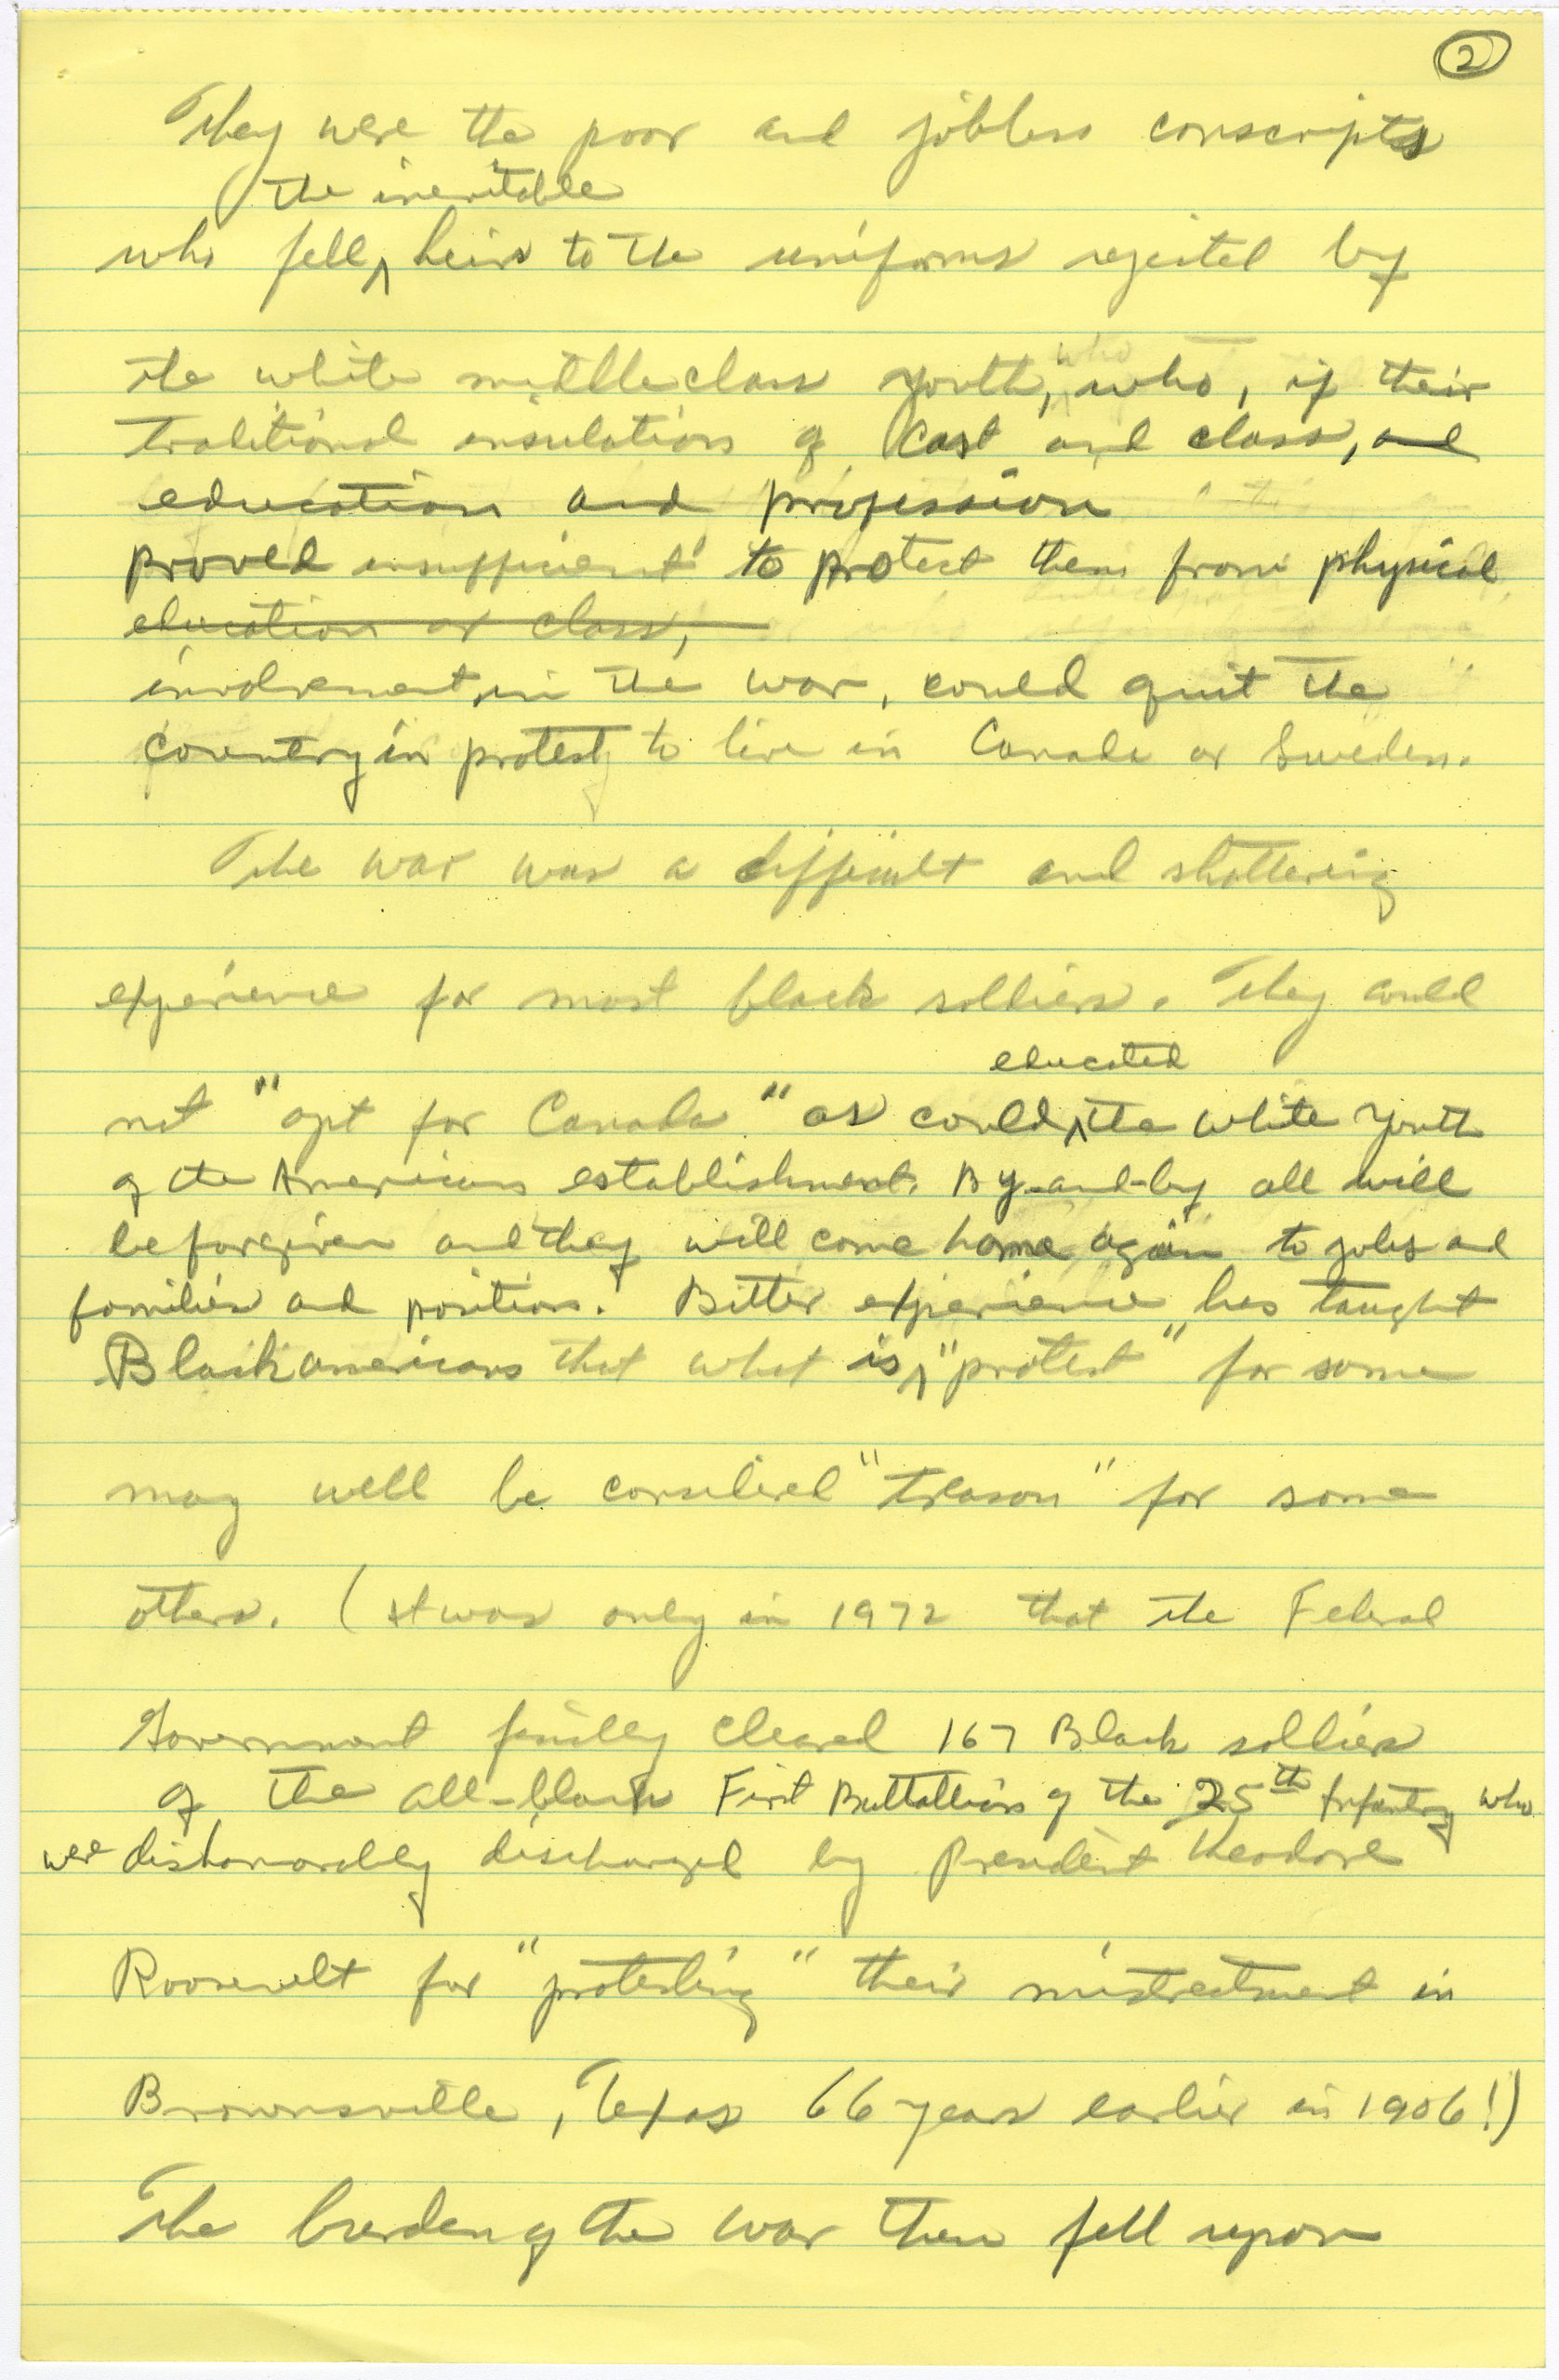 2
They were the poor and jobless conscripts
the inevitable
who fell ^ heirs to the uniforms rejected by
the white middleclass youth, who, if their
traditional insulation of cast and class, and
education and profession
proved insufficient to protect them from physical
education or class,
involvement in the war, could quit the
country in protest to live in Canada or Sweden.
The war was a difficult and shattering
experience for most black soldiers. They could
educated
not "opt for Canada" as could ^ the white youth
of the American establishment. By-and-by all will
be forgiven and they will come home again to jobs and
families and position. Bitter experience has taught
Black americans that what is ^ "protest" for some
may well be considered "treason" for some
others. (It was only in 1972 that the Federal
Government finally cleared 167 Black soldiers
of the all-black First Battallion of the 25th Infantry who
were dishonorably discharged by President Theodore
Roosevelt for "protesting" their mistreatment in
Brownsville, Texas 66 years earlier in 1906!)
The burden of the war then fell upon